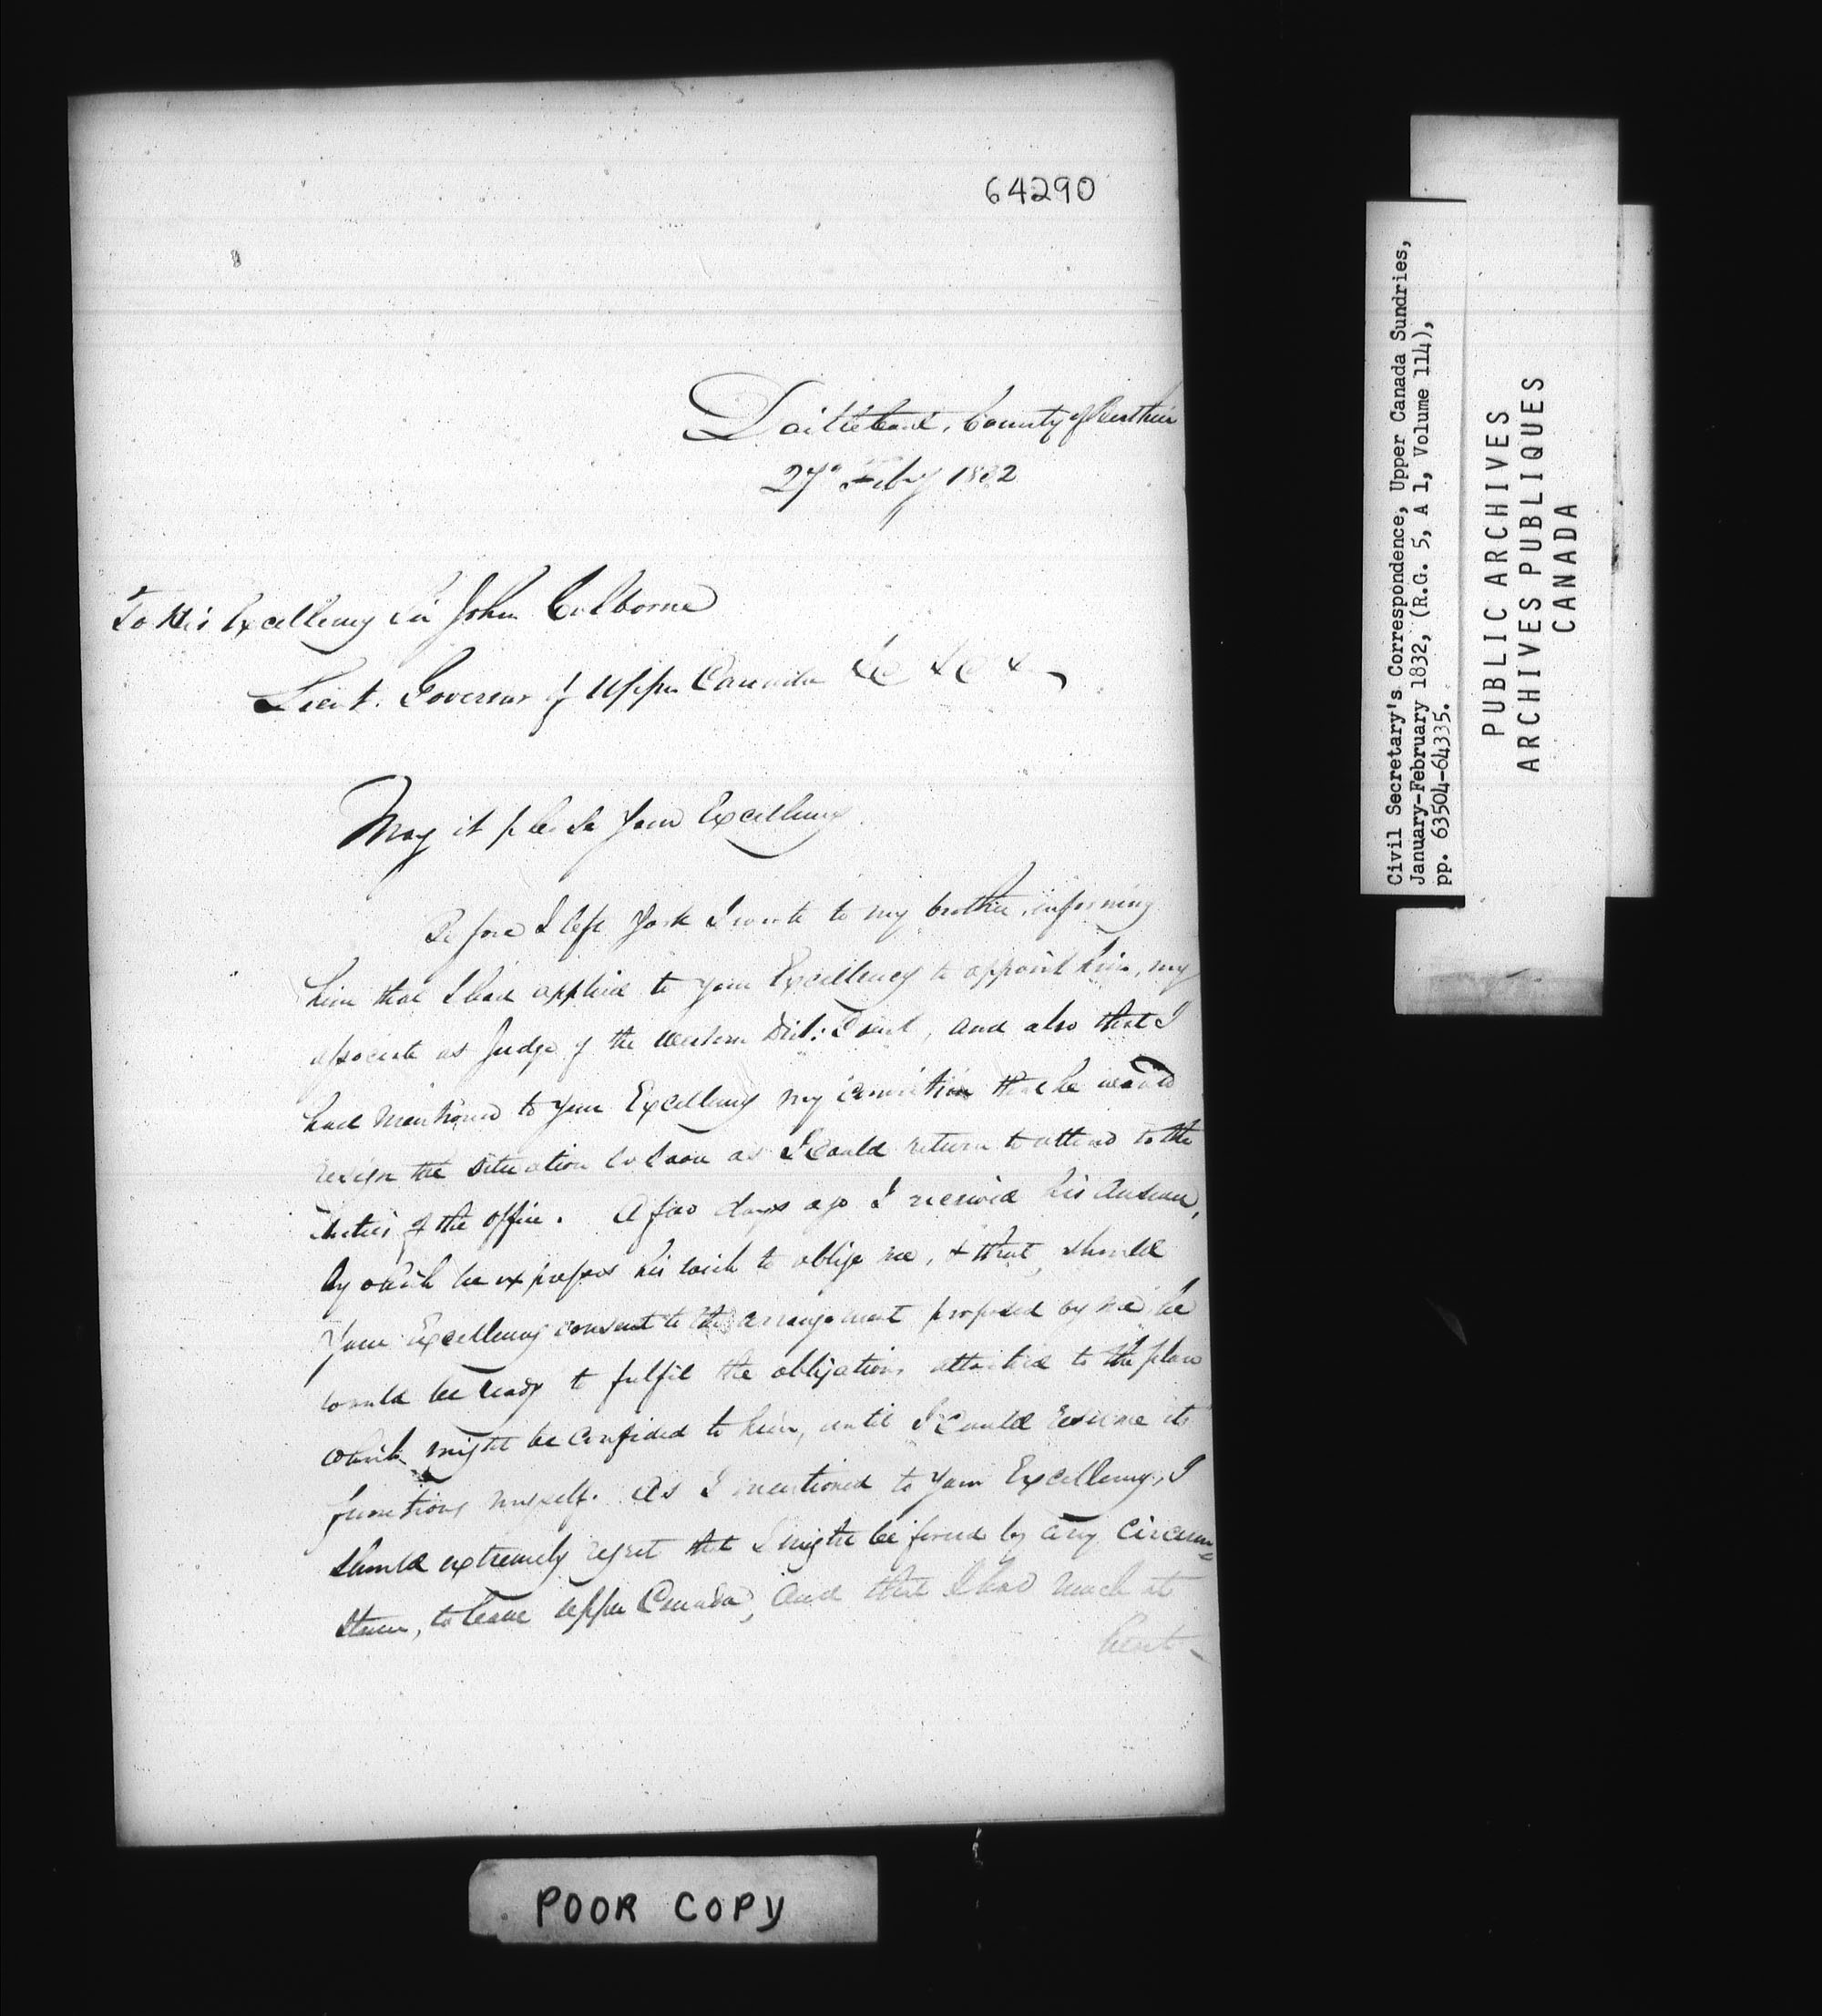 64290
County of Berthier
27th Feby 1832
To His Excellency Sir John Colborne
Lieut. Governor of Upper Canada &c &c &
May it please Your Excellency
Before I left York I wrote to my brother, informing
him that I had applied to your Excellency to appoint him, my
associate as Judge of the Western Dist: Court, and also that I
had mentioned to Your Excellency my conviction that he would
resign the situation so soon as I could return to attend to the
duties of the office. A few days ago I received his answer,
by which he expresses his wish to oblige me, & that, should
Your Excellency consent to the arrangement proposed by me he
would be ready to fulfil the obligations attached to the place
which might be confided to him, until I could resume its
functions myself. As I mentioned to Your Excellency, I
should extremely regret that I might be forced by any circum=
stance, to leave Upper Canada, and that I had much at
heart
POOR COPY
Civil Secretary's Correspondence, Upper Canada Sundries,
January-February 1832, (R.G. 5, A 1, Volume 114),
pp. 63504-64335.
PUBLIC ARCHIVES
ARCHIVES PUBLIQUES
CANADA